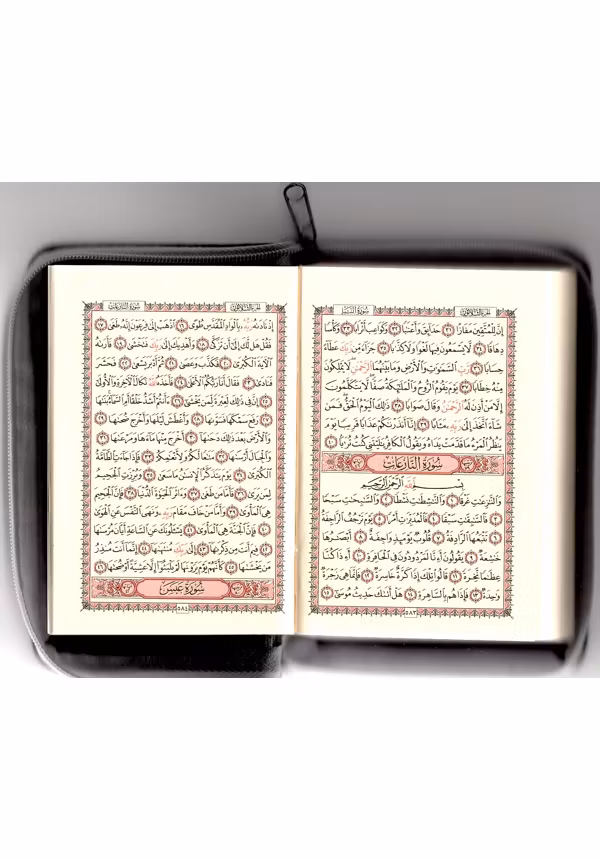 الجزء الثلاثون سورة النبإ
إِنَّ لِلْمُتَّقِينَ مَفَازًا ٣١ حَدَآئِقَ وَأَعْنَٰبًا ٣٢ وَكَوَاعِبَ أَتْرَابًا ٣٣ وَكَأْسًا
دِهَاقًا ٣٤ لَّا يَسْمَعُونَ فِيهَا لَغْوًا وَلَا كِذَّٰبًا ٣٥ جَزَآءً مِّن رَّبِّكَ عَطَآءً
حِسَابًا ٣٦ رَّبِّ ٱلسَّمَٰوَٰتِ وَٱلْأَرْضِ وَمَا بَيْنَهُمَا ٱلرَّحْمَٰنِ لَا يَمْلِكُونَ
مِنْهُ خِطَابًا ٣٧ يَوْمَ يَقُومُ ٱلرُّوحُ وَٱلْمَلَٰٓئِكَةُ صَفًّا لَّا يَتَكَلَّمُونَ
إِلَّا مَنْ أَذِنَ لَهُ ٱلرَّحْمَٰنُ وَقَالَ صَوَابًا ٣٨ ذَٰلِكَ ٱلْيَوْمُ ٱلْحَقُّ فَمَن
شَآءَ ٱتَّخَذَ إِلَىٰ رَبِّهِۦ مَـَٔابًا ٣٩ إِنَّآ أَنذَرْنَٰكُمْ عَذَابًا قَرِيبًا يَوْمَ
يَنظُرُ ٱلْمَرْءُ مَا قَدَّمَتْ يَدَاهُ وَيَقُولُ ٱلْكَافِرُ يَٰلَيْتَنِى كُنتُ تُرَٰبًۢا ٤٠
سُورَةُ النَّازِعَاتِ
بِسْمِ ٱللَّهِ ٱلرَّحْمَٰنِ ٱلرَّحِيمِ
وَٱلنَّٰزِعَٰتِ غَرْقًا ١ وَٱلنَّٰشِطَٰتِ نَشْطًا ٢ وَٱلسَّٰبِحَٰتِ سَبْحًا
٣ فَٱلسَّٰبِقَٰتِ سَبْقًا ٤ فَٱلْمُدَبِّرَٰتِ أَمْرًا ٥ يَوْمَ تَرْجُفُ ٱلرَّاجِفَةُ
٦ تَتْبَعُهَا ٱلرَّادِفَةُ ٧ قُلُوبٌ يَوْمَئِذٍ وَاجِفَةٌ ٨ أَبْصَٰرُهَا
خَٰشِعَةٌ ٩ يَقُولُونَ أَءِنَّا لَمَرْدُودُونَ فِى ٱلْحَافِرَةِ ١٠ أَءِذَا كُنَّا
عِظَٰمًا نَّخِرَةً ١١ قَالُوا۟ تِلْكَ إِذًا كَرَّةٌ خَاسِرَةٌ ١٢ فَإِنَّمَا هِىَ زَجْرَةٌ
وَٰحِدَةٌ ١٣ فَإِذَا هُم بِٱلسَّاهِرَةِ ١٤ هَلْ أَتَىٰكَ حَدِيثُ مُوسَىٰٓ ١٥
٥٨٣
الجزء الثلاثون سورة النازعات
إِذْ نَادَىٰهُ رَبُّهُۥ بِٱلْوَادِ ٱلْمُقَدَّسِ طُوًى ١٦ ٱذْهَبْ إِلَىٰ فِرْعَوْنَ إِنَّهُۥ طَغَىٰ ١٧
فَقُلْ هَل لَّكَ إِلَىٰٓ أَن تَزَكَّىٰ ١٨ وَأَهْدِيَكَ إِلَىٰ رَبِّكَ فَتَخْشَىٰ ١٩ فَأَرَىٰهُ
ٱلْءَايَةَ ٱلْكُبْرَىٰ ٢٠ فَكَذَّبَ وَعَصَىٰ ٢١ ثُمَّ أَدْبَرَ يَسْعَىٰ ٢٢ فَحَشَرَ
فَنَادَىٰ ٢٣ فَقَالَ أَنَا۠ رَبُّكُمُ ٱلْأَعْلَىٰ ٢٤ فَأَخَذَهُ ٱللَّهُ نَكَالَ ٱلْءَاخِرَةِ وَٱلْأُولَىٰٓ
٢٥ إِنَّ فِى ذَٰلِكَ لَعِبْرَةً لِّمَن يَخْشَىٰٓ ٢٦ ءَأَنتُمْ أَشَدُّ خَلْقًا أَمِ ٱلسَّمَآءُ بَنَىٰهَا
٢٧ رَفَعَ سَمْكَهَا فَسَوَّىٰهَا ٢٨ وَأَغْطَشَ لَيْلَهَا وَأَخْرَجَ ضُحَىٰهَا ٢٩
وَٱلْأَرْضَ بَعْدَ ذَٰلِكَ دَحَىٰهَآ ٣٠ أَخْرَجَ مِنْهَا مَآءَهَا وَمَرْعَىٰهَا ٣١
وَٱلْجِبَالَ أَرْسَىٰهَا ٣٢ مَتَٰعًا لَّكُمْ وَلِأَنْعَٰمِكُمْ ٣٣ فَإِذَا جَآءَتِ ٱلطَّآمَّةُ
ٱلْكُبْرَىٰ ٣٤ يَوْمَ يَتَذَكَّرُ ٱلْإِنسَٰنُ مَا سَعَىٰ ٣٥ وَبُرِّزَتِ ٱلْجَحِيمُ
لِمَن يَرَىٰ ٣٦ فَأَمَّا مَن طَغَىٰ ٣٧ وَءَاثَرَ ٱلْحَيَوٰةَ ٱلدُّنْيَا ٣٨ فَإِنَّ ٱلْجَحِيمَ
هِىَ ٱلْمَأْوَىٰ ٣٩ وَأَمَّا مَنْ خَافَ مَقَامَ رَبِّهِۦ وَنَهَى ٱلنَّفْسَ عَنِ ٱلْهَوَىٰ
٤٠ فَإِنَّ ٱلْجَنَّةَ هِىَ ٱلْمَأْوَىٰ ٤١ يَسْـَٔلُونَكَ عَنِ ٱلسَّاعَةِ أَيَّانَ مُرْسَىٰهَا
٤٢ فِيمَ أَنتَ مِن ذِكْرَىٰهَآ ٤٣ إِلَىٰ رَبِّكَ مُنتَهَىٰهَآ ٤٤ إِنَّمَآ أَنتَ مُنذِرُ
مَن يَخْشَىٰهَا ٤٥ كَأَنَّهُمْ يَوْمَ يَرَوْنَهَا لَمْ يَلْبَثُوٓا۟ إِلَّا عَشِيَّةً أَوْ ضُحَىٰهَا ٤٦
سُورَةُ عَبَسَ
٥٨٤